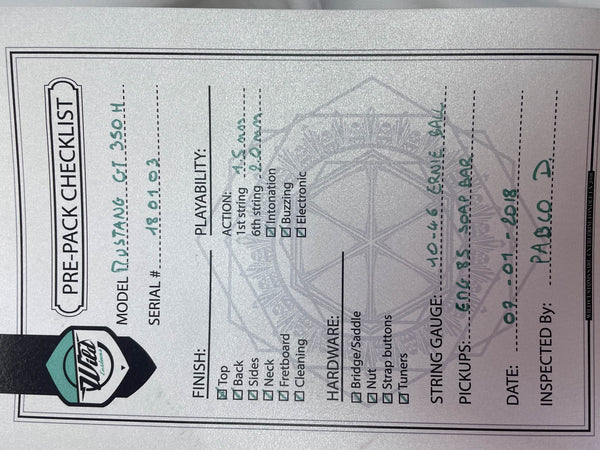 Wild
Customs
PRE-PACK CHECKLIST
MODEL MUSTANG GT 350 H
SERIAL # 180103
FINISH:
Top
Back
Sides
Neck
Fretboard
Cleaning
PLAYABILITY:
ACTION:
1st string 1.5 mm
6th string 2.0 mm
Intonation
Buzzing
Electronic
HARDWARE:
Bridge/Saddle
Nut
Strap buttons
Tuners
STRING GAUGE: 10-46 ERNIE BALL
PICKUPS: EMG 85 SOAP BAR
DATE: 09-01-2018
INSPECTED By: PABLO D.